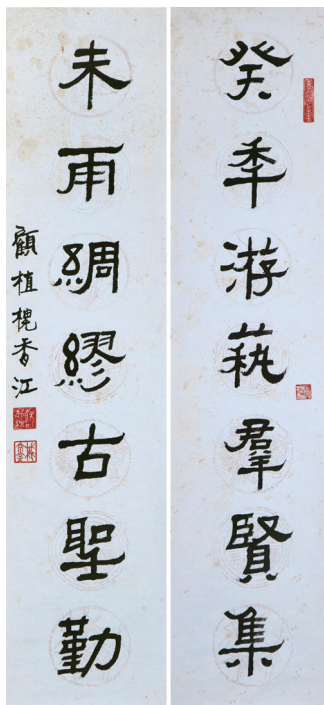 癸秊游蓺羣賢集
未雨綢繆古聖勤
顧植槐香江